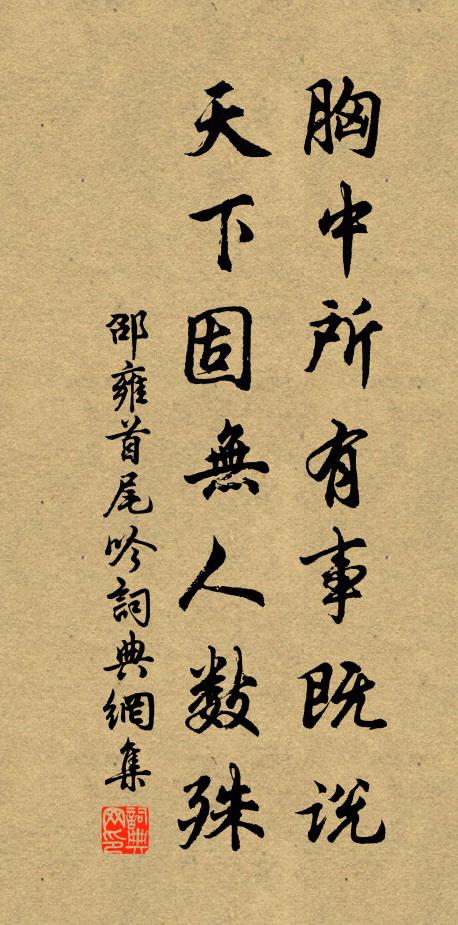 胸中所有事既説
天下固無人數殊
邵雍首尾吟詞典網集
詞典网印